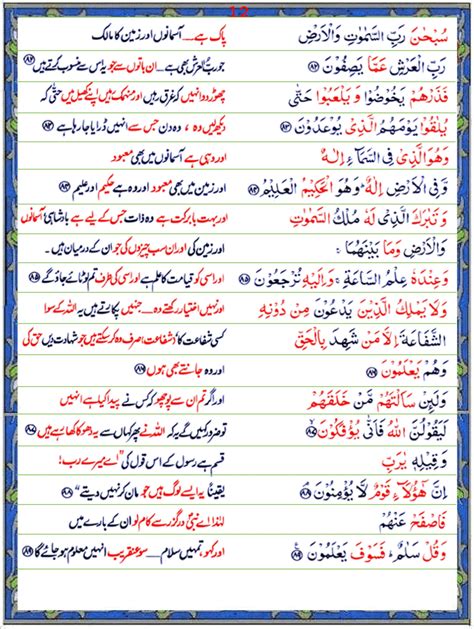 12
سُبْحٰنَ رَبِّ السَّمٰوٰتِ وَالْاَرْضِ پاک ہے... آسمانوں اور زمین کا مالک
رَبِّ الْعَرْشِ عَمَّا يَصِفُوْنَ ۸۲ جو ربُّ العرش بھی ہے... ان باتوں سے جو یہ اس سے منسوب کرتے ہیں ۸۲
فَذَرْهُمْ يَخُوْضُوْا وَ يَلْعَبُوْا حَتّٰى چھوڑ دو انہیں کہ غرق رہیں اور منہمک ہیں اپنے کھیل میں حتیٰ کہ
يُلٰقُوْا يَوْمَهُمُ الَّذِىْ يُوْعَدُوْنَ ۸۳ دیکھ لیں وہ، وہ دن جس سے انہیں ڈرایا جا رہا ہے ۸۳
وَهُوَ الَّذِىْ فِى السَّمَآءِ اِلٰهٌ اور وہی ہے آسمانوں میں بھی معبود
وَّفِى الْاَرْضِ اِلٰهٌ ؕ وَهُوَ الْحَكِيْمُ الْعَلِيْمُ ۸۴ اور زمین میں بھی معبود اور وہ ہے حکیم اور علیم ۸۴
وَتَبٰرَكَ الَّذِىْ لَهٗ مُلْكُ السَّمٰوٰتِ اور بہت بابرکت ہے وہ ذات جس کے لیے ہے بادشاہی آسمانوں
وَالْاَرْضِ وَمَا بَيْنَهُمَا ۚ اور زمین کی اور ان سب چیزوں کی جو ان کے درمیان ہیں
وَعِنْدَهٗ عِلْمُ السَّاعَةِ ۚ وَاِلَيْهِ تُرْجَعُوْنَ ۸۵ اور اسی کو قیامت کا علم ہے اور اسی کی طرف تم لوٹائے جاؤ گے ۸۵
وَلَا يَمْلِكُ الَّذِيْنَ يَدْعُوْنَ مِنْ دُوْنِهِ اور نہیں اختیار رکھتے وہ... جنہیں پکارتے ہیں یہ اللہ کے سوا
الشَّفَاعَةَ اِلَّا مَنْ شَهِدَ بِالْحَقِّ کسی شفاعت کا شفاعت صرف وہ کرسکتے ہیں جو شہادت دیں حق کی
وَهُمْ يَعْلَمُوْنَ ۸۶ اور وہ جانتے بھی ہوں ۸۶
وَلَئِنْ سَاَلْتَهُمْ مَّنْ خَلَقَهُمْ اور اگر تم ان سے پوچھو کہ کس نے پیدا کیا ہے انہیں
لَيَقُوْلُنَّ اللّٰهُ فَاَنّٰى يُؤْفَكُوْنَ ۸۷ تو ضرور کہیں گے یہ کہ اللہ نے پھر کہاں سے یہ دھوکا کھا رہے ہیں ۸۷
وَقِيْلِهٖ يٰرَبِّ قسم ہے رسول کے اس قول کی "اے میرے رب!
اِنَّ هٰٓؤُلَآءِ قَوْمٌ لَّا يُؤْمِنُوْنَ ۸۸ یقیناً یہ ایسے لوگ ہیں جو مان کر نہیں دیتے" ۸۸
فَاصْفَحْ عَنْهُمْ لہٰذا اے نبیؐ درگزر سے کام لو ان کے بارے میں
وَقُلْ سَلٰمٌ ؕ فَسَوْفَ يَعْلَمُوْنَ ۸۹ اور کہو، تمہیں سلام... سو عنقریب انہیں معلوم ہو جائے گا ۸۹